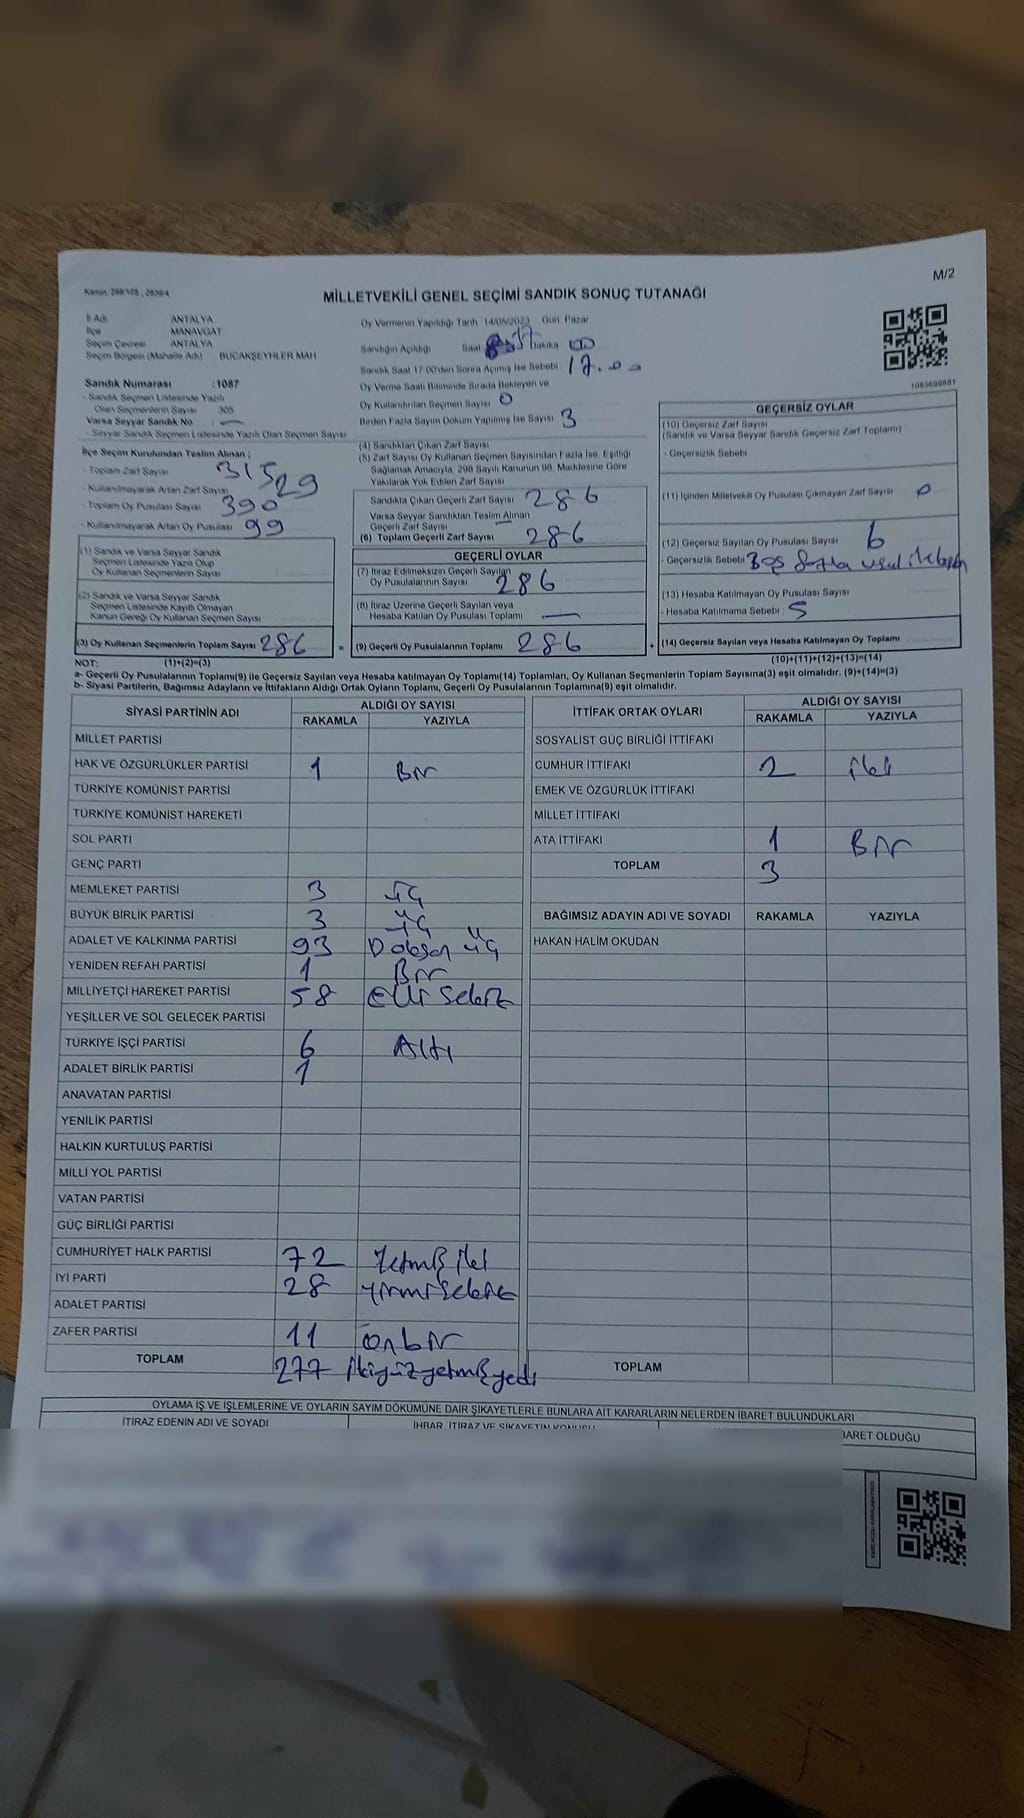 Kanun: 298/105, 2839/4
M/2
MİLLETVEKİLİ GENEL SEÇİMİ SANDIK SONUÇ TUTANAĞI
İl Adı ANTALYA
İlçe MANAVGAT
Seçim Çevresi ANTALYA
Seçim Bölgesi (Mahalle Adı) BUCAKŞEYHLER MAH
Sandık Numarası :1087
- Sandık Seçmen Listesinde Yazılı
Olan Seçmenlerin Sayısı 305
Varsa Seyyar Sandık No —
- Seyyar Sandık Seçmen Listesinde Yazılı Olan Seçmen Sayısı
İlçe Seçim Kurulundan Teslim Alınan ;
- Toplam Zarf Sayısı 315
- Kullanılmayarak Artan Zarf Sayısı 29
- Toplam Oy Pusulası Sayısı 390
- Kullanılmayarak Artan Oy Pusulası 99
(1) Sandık ve Varsa Seyyar Sandık
Seçmen Listesinde Yazılı Olup
Oy Kullanan Seçmenlerin Sayısı
(2) Sandık ve Varsa Seyyar Sandık
Seçmen Listesinde Kayıtlı Olmayan
Kanun Gereği Oy Kullanan Seçmen Sayısı
(3) Oy Kullanan Seçmenlerin Toplam Sayısı 286
Oy Vermenin Yapıldığı Tarih 14/05/2023 Gün Pazar
Sandığın Açıldığı Saat 17 Dakika 00
Sandık Saat 17:00'den Sonra Açımış İse Sebebi 17.00
Oy Verme Saati Bitiminde Sırada Bekleyen ve
Oy Kullandırılan Seçmen Sayısı 0
Birden Fazla Sayım Döküm Yapılmış İse Sayısı 3
(4) Sandıktan Çıkan Zarf Sayısı
(5) Zarf Sayısı Oy Kullanan Seçmen Sayısından Fazla İse, Eşitliği
Sağlamak Amacıyla, 298 Sayılı Kanunun 98. Maddesine Göre
Yakılarak Yok Edilen Zarf Sayısı
Sandıkta Çıkan Geçerli Zarf Sayısı 286
Varsa Seyyar Sandıktan Teslim Alınan
Geçerli Zarf Sayısı
(6) Toplam Geçerli Zarf Sayısı 286
GEÇERLİ OYLAR
(7) İtiraz Edilmeksizin Geçerli Sayılan
Oy Pusulalarının Sayısı 286
(8) İtiraz Üzerine Geçerli Sayılan veya
Hesaba Katılan Oy Pusulası Toplamı —
= (9) Geçerli Oy Pusulalarının Toplamı 286 +
1083699881
GEÇERSİZ OYLAR
(10) Geçersiz Zarf Sayısı
(Sandık ve Varsa Seyyar Sandık Geçersiz Zarf Toplamı)
- Geçersizlik Sebebi
(11) İçinden Milletvekili Oy Pusulası Çıkmayan Zarf Sayısı 0
(12) Geçersiz Sayılan Oy Pusulası Sayısı 6
- Geçersizlik Sebebi
(13) Hesaba Katılmayan Oy Pusulası Sayısı
- Hesaba Katılmama Sebebi 5
(14) Geçersiz Sayılan veya Hesaba Katılmayan Oy Toplamı
NOT: (1)+(2)=(3) (10)+(11)+(12)+(13)=(14)
a- Geçerli Oy Pusulalarının Toplamı(9) ile Geçersiz Sayılan veya Hesaba katılmayan Oy Toplamı(14) Toplamları, Oy Kullanan Seçmenlerin Toplam Sayısına(3) eşit olmalıdır. (9)+(14)=(3)
b- Siyasi Partilerin, Bağımsız Adayların ve İttifakların Aldığı Ortak Oyların Toplamı, Geçerli Oy Pusulalarının Toplamına(9) eşit olmalıdır.
SİYASİ PARTİNİN ADI ALDIĞI OY SAYISI
RAKAMLA YAZIYLA
MİLLET PARTİSİ
HAK VE ÖZGÜRLÜKLER PARTİSİ 1 Bir
TÜRKİYE KOMÜNİST PARTİSİ
TÜRKİYE KOMÜNİST HAREKETİ
SOL PARTİ
GENÇ PARTİ
MEMLEKET PARTİSİ 3 üç
BÜYÜK BİRLİK PARTİSİ 3 üç
ADALET VE KALKINMA PARTİSİ 93 Doksan üç
YENİDEN REFAH PARTİSİ 1 Bir
MİLLİYETÇİ HAREKET PARTİSİ 58 elli sekiz
YEŞİLLER VE SOL GELECEK PARTİSİ
TÜRKİYE İŞÇİ PARTİSİ 6 Altı
ADALET BİRLİK PARTİSİ 1
ANAVATAN PARTİSİ
YENİLİK PARTİSİ
HALKIN KURTULUŞ PARTİSİ
MİLLİ YOL PARTİSİ
VATAN PARTİSİ
GÜÇ BİRLİĞİ PARTİSİ
CUMHURİYET HALK PARTİSİ 72 Yetmiş iki
İYİ PARTİ 28 yirmi sekiz
ADALET PARTİSİ
ZAFER PARTİSİ 11 onbir
TOPLAM 277 ikiyüzyetmişyedi
İTTİFAK ORTAK OYLARI ALDIĞI OY SAYISI
RAKAMLA YAZIYLA
SOSYALİST GÜÇ BİRLİĞİ İTTİFAKI
CUMHUR İTTİFAKI 2 iki
EMEK VE ÖZGÜRLÜK İTTİFAKI
MİLLET İTTİFAKI
ATA İTTİFAKI 1 Bir
TOPLAM 3
BAĞIMSIZ ADAYIN ADI VE SOYADI RAKAMLA YAZIYLA
HAKAN HALİM OKUDAN
TOPLAM
OYLAMA İŞ VE İŞLEMLERİNE VE OYLARIN SAYIM DÖKÜMÜNE DAİR ŞİKAYETLERLE BUNLARA AİT KARARLARIN NELERDEN İBARET BULUNDUKLARI
İTİRAZ EDENİN ADI VE SOYADI İHBAR, İTİRAZ VE ŞİKAYETİN KONUSU BARET OLDUĞU